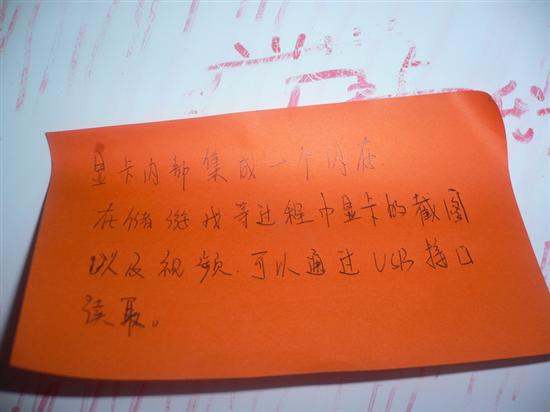 显卡内部集成一个内存
在储 戏等过程中显卡的截图
以及视频.可以通过USB接口
读取。